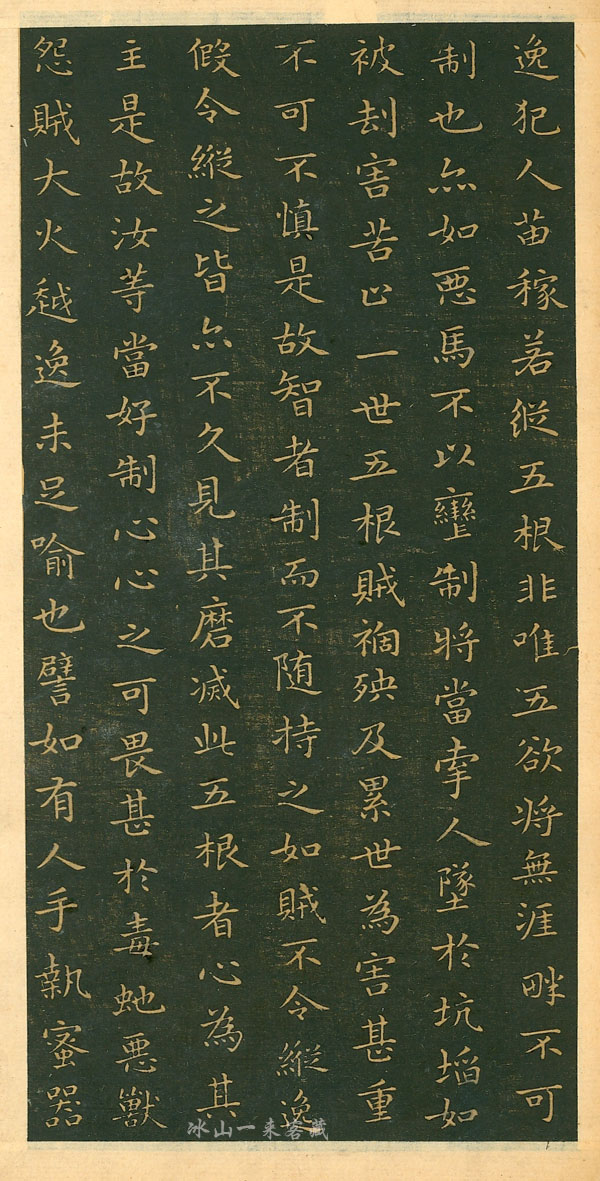 逸犯人苗稼若縱五根非唯五欲將無涯畔不可
制也亦如惡馬不以轡制將當牽人墜於坑埳如
被刧害苦止一世五根賊禍殃及累世為害甚重
不可不慎是故智者制而不随持之如賊不令縱逸
假令縱之皆亦不久見其磨滅此五根者心為其
主是故汝等當好制心心之可畏甚於毒虵惡獸
怨賊大火越逸未足喻也譬如有人手執蜜器
冰山一来客藏